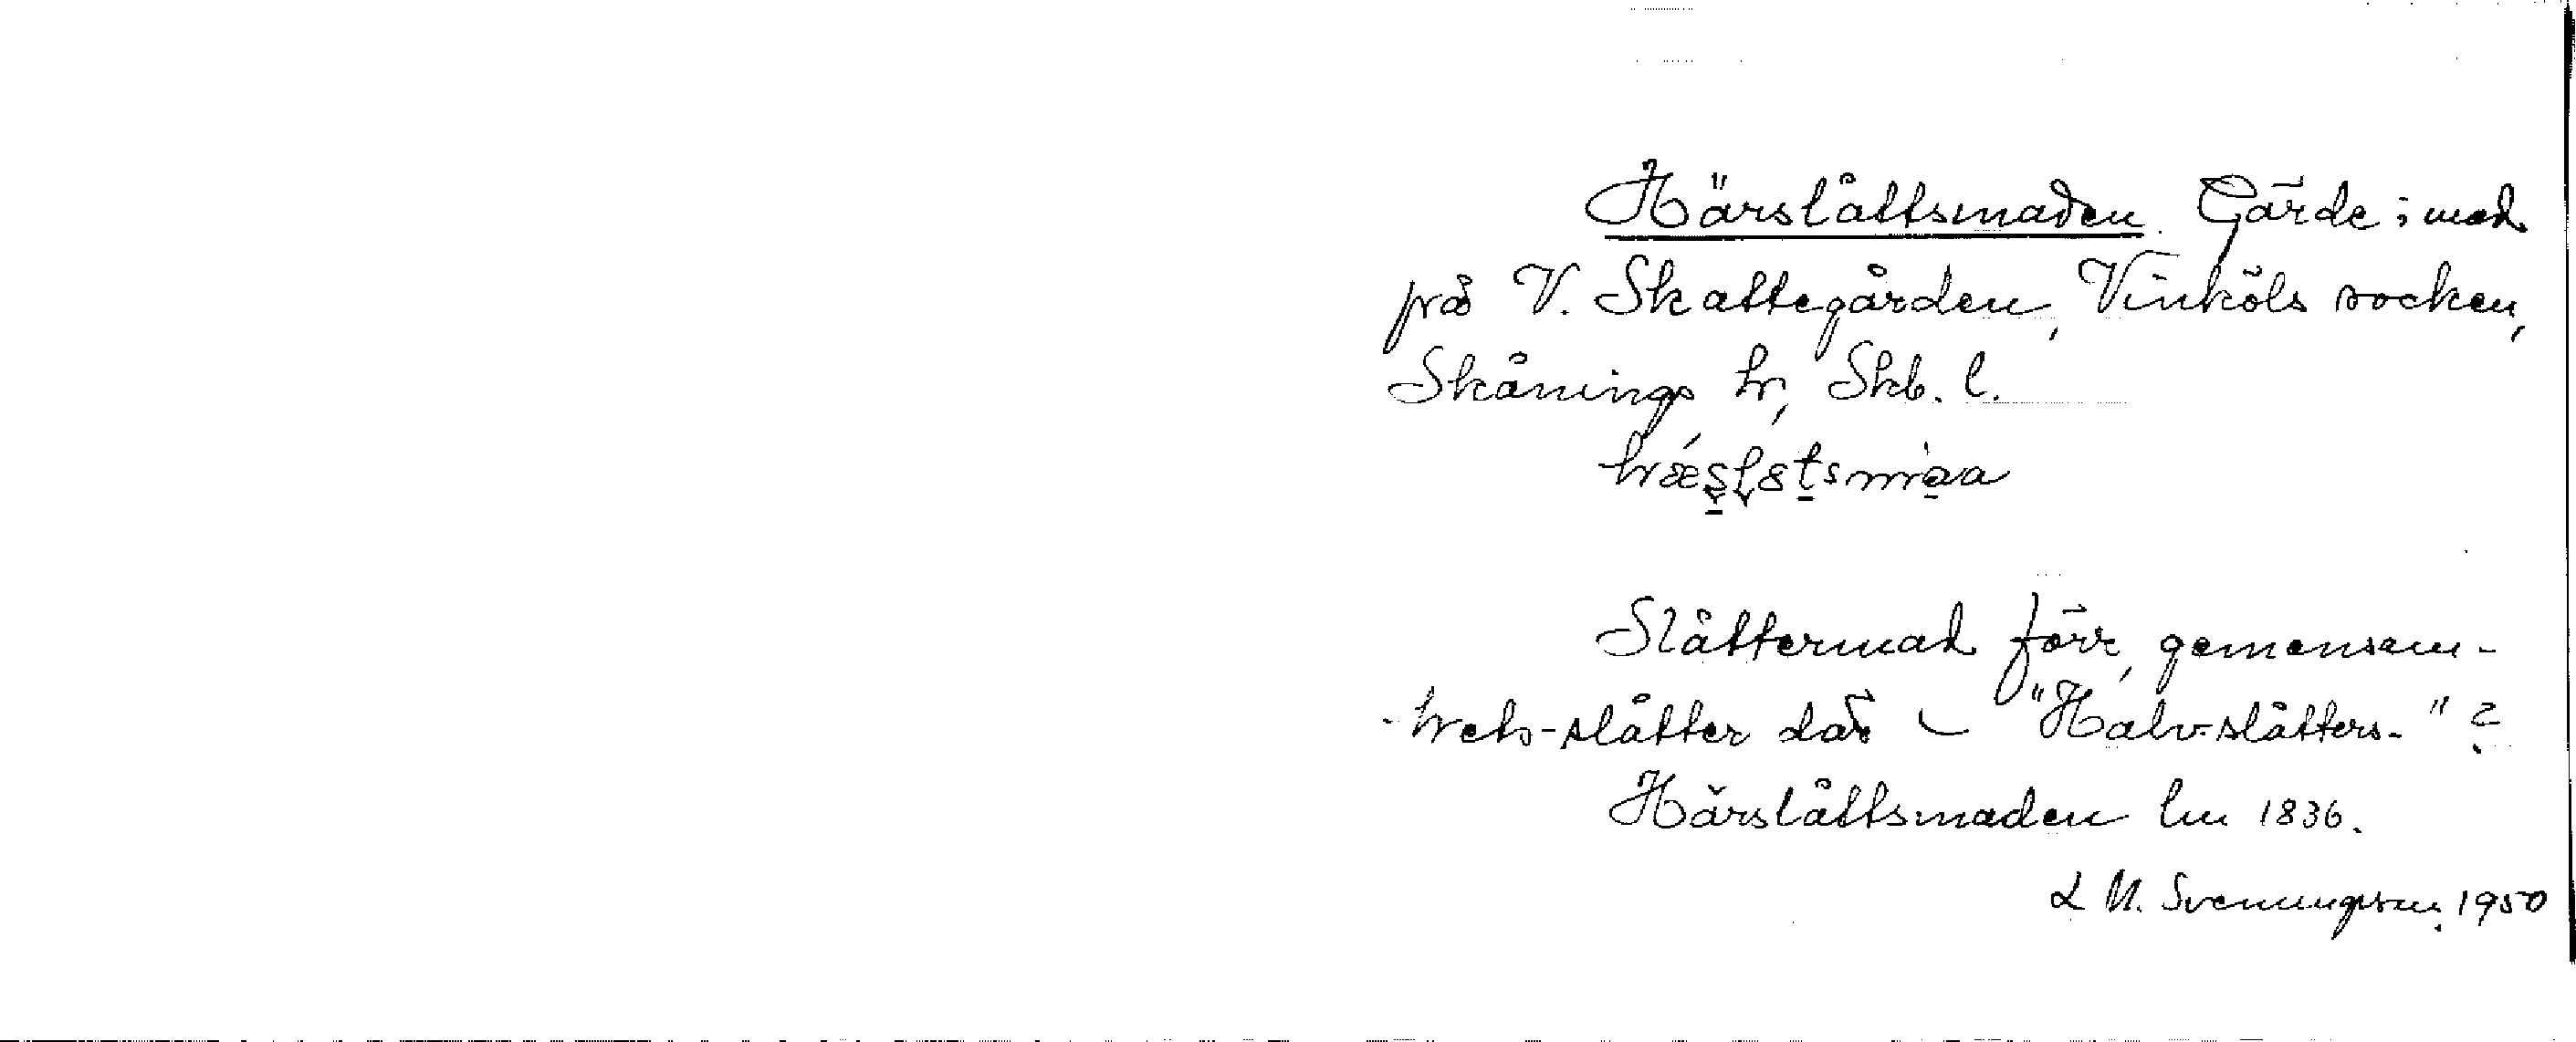 Härslåttsmaden. Gärde; mad
på V. Skattegården, Vinköls socken,
Skånings hr, Skb. l.
Slåttermad förr, gemensam-
-hets-slåtter där – "Halv-slåtters-"?
Härslåttsmaden lm 1836.
L M. Svenungsson. 1950